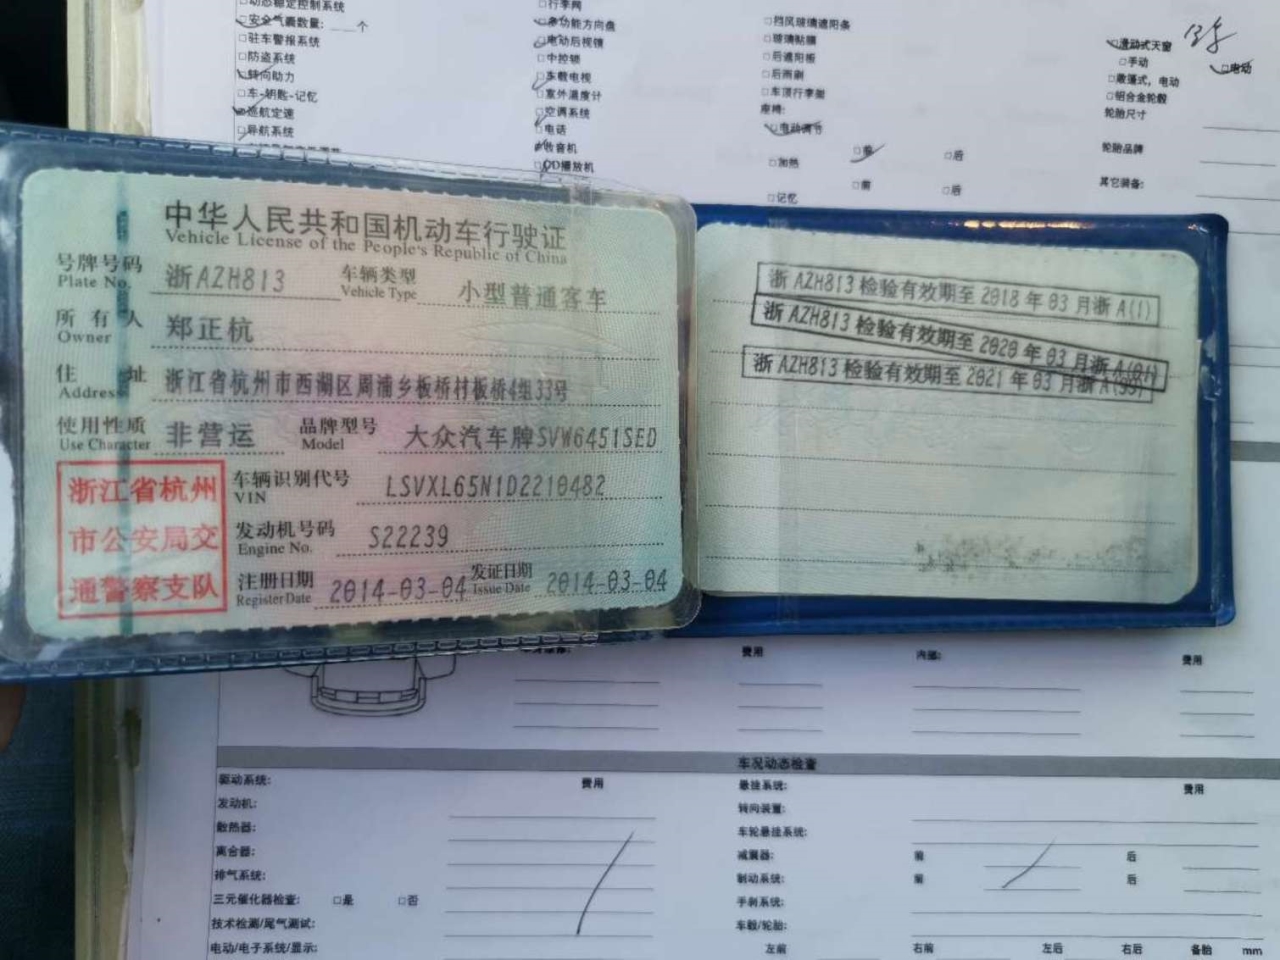 □动态稳定控制系统
□安全气囊数量: ___个
□驻车警报系统
□防盗系统
□转向助力
□车-钥匙-记忆
□巡航定速
□导航系统
□行李网
□多功能方向盘
□电动后视镜
□中控锁
□车载电视
□室外温度计
□空调系统
□电话
□收音机
□CD播放机
□挡风玻璃遮阳条
□玻璃贴膜
□后遮阳板
□后雨刷
□车顶行李架
座椅:
□电动调节
□加热 □前 □后
□记忆 □前 □后
□滑动式天窗
□手动 □电动
□敞篷式, 电动
□铝合金轮毂
轮胎尺寸
轮胎品牌
其它装备:
中华人民共和国机动车行驶证
Vehicle License of the People's Republic of China
号牌号码 浙AZH813 车辆类型 小型普通客车
Plate No. Vehicle Type
所有人 郑正杭
Owner
住址 浙江省杭州市西湖区周浦乡板桥村板桥4组33号
Address
使用性质 非营运 品牌型号 大众汽车牌SVW6451SED
Use Character Model
浙江省杭州
市公安局交
通警察支队
车辆识别代号 LSVXL65N1D2210482
VIN
发动机号码 S22239
Engine No.
注册日期 2014-03-04 发证日期 2014-03-04
Register Date Issue Date
浙AZH813检验有效期至2018年03月浙A(1)
浙AZH813检验有效期至2020年03月浙A(01)
浙AZH813检验有效期至2021年03月浙A
费用 内部: 费用
车况动态检查
驱动系统: 费用
发动机:
散热器:
离合器:
排气系统:
三元催化器检查: □是 □否
技术检测/尾气测试:
电动/电子系统/显示:
悬挂系统: 费用
转向装置:
车轮悬挂系统:
减震器: 前 后
制动系统: 前 后
手刹系统:
车毂/轮胎:
左前 右前 左后 右后 备胎 mm